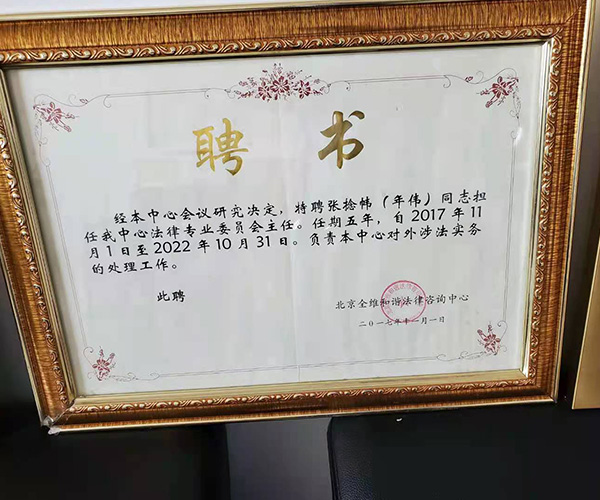 聘书
经本中心会议研究决定，特聘张捻帏（年伟）同志担
任我中心法律专业委员会主任。任期五年，自2017年11
月1日至2022年10月31日。负责本中心对外涉法实务
的处理工作。
此聘
北京全维和谐法律咨询中心
二〇一七年十一月一日